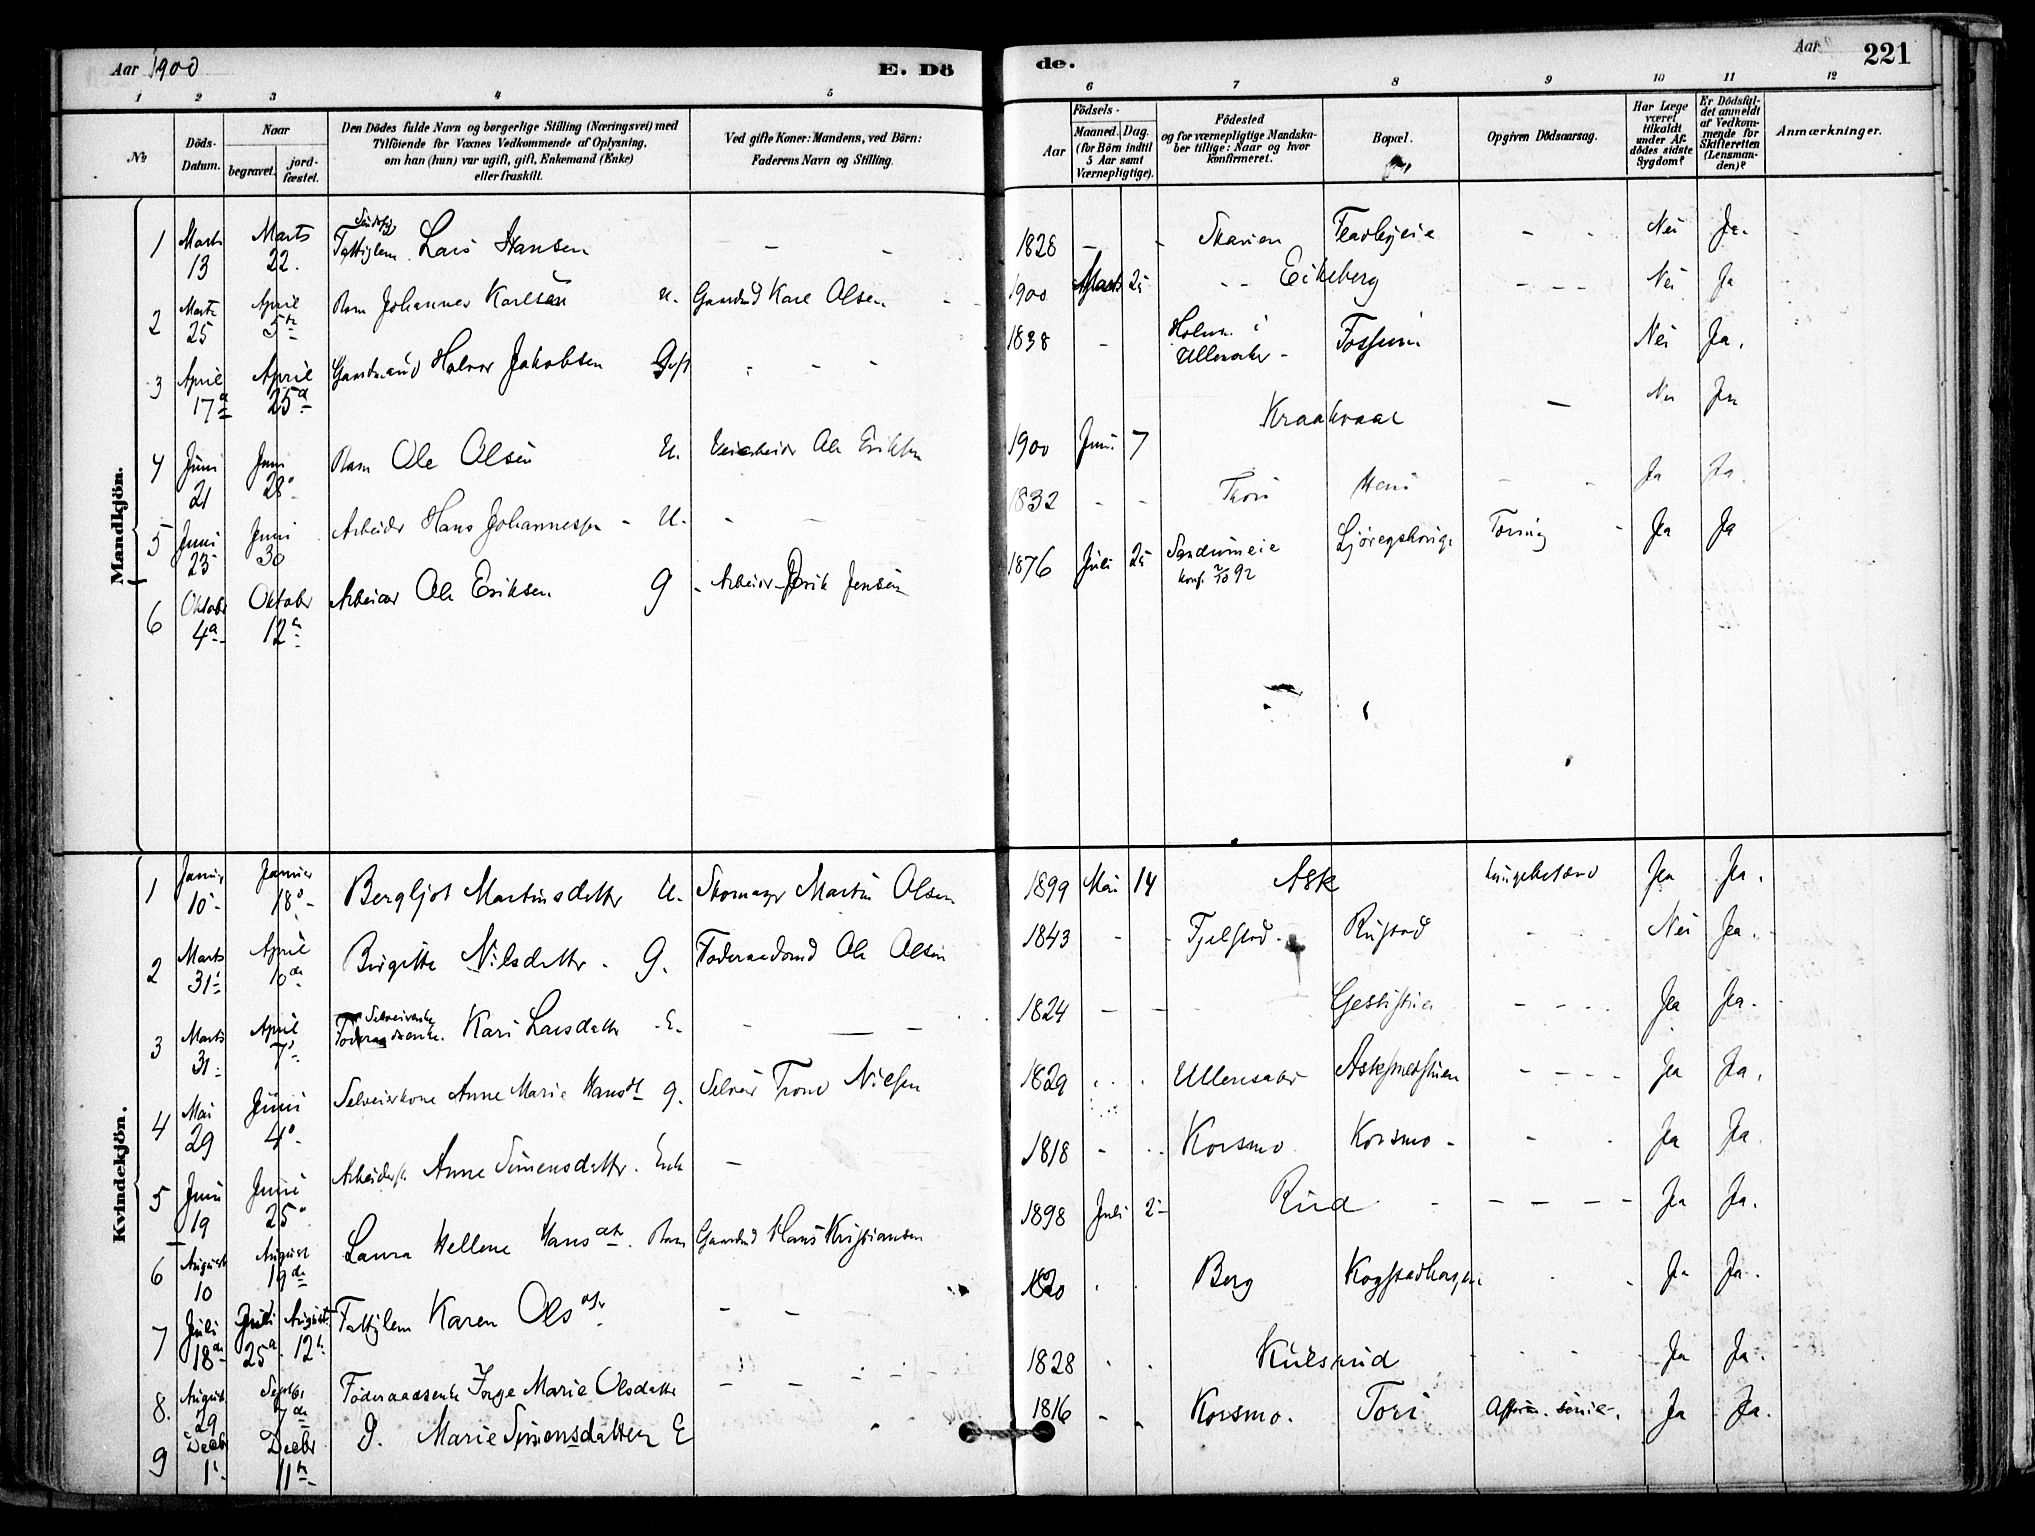 Aar 1900
E. Döde.
Aar 221
1 2 3 4 5 6 7 8 9 10 11 12
No
Döds-Datum.
Naar
begravet. jordfæstet.
Den Dödes fulde Navn og borgerlige Stilling (Næringsvei) med Tilföiende for Voxnes Vedkommende af Oplysning, om han (hun) var ugift, gift, Enkemand (Enke) eller fraskilt.
Ved gifte Koner: Mandens, ved Börn: Faderens Navn og Stilling.
Födsels-
Aar
Maaned. Dag.
(for Börn indtil 5 Aar samt Værnepligtige).
Födested og for værnepligtige Mandskaber tillige: Naar og hvor konfirmeret.
Bopæl.
Opgiven Dödsaarsag.
Har Læge været tilkaldt under Afdödes sidste Sygdom?
Er Dödsfaldet anmeldt af Vedkommende for Skifteretten (Lensmanden)?
Anmærkninger.
Mandkjön.
1 Marts 13 Marts 22. Fattiglem Lars Hansen - - 1828 - - Nei Ja.
2 Marts 25 April 5te Barn Johannes Karlsen u. Gaardmd Karl Olsen 1900 Marts 25 Eikeberg - - - Nei Ja
3 April 17de April 25de Gaardmand Halvor Jakobsen Gift - - - 1838 - Holm i Ullensaker - Fossum Nei Ja.
4 Juni 21 Juni 28 Barn Ole Olsen U. Veiarbeider Ole Eriksen 1900 Juni 7 Kraakvaal - Nei Ja
5 Juni 23 Juni 30 Arbeider Hans Johannessen - U. - 1832 - - Ja Ja.
6 Oktober 4de Oktober 12te Arbeider Ole Eriksen G - Arbeider Erik Jensen 1876 Juli 25 Sandumeie Konf. 2/10 92 Tæring Ja Ja
Kvindekjön.
1 Januar 10 Januar 18 Bergljot Martinsdatter U. Skomager Martin Olsen 1899 Mai 14 Ask Lungebetænd Ja Ja.
2 Marts 31 April 10de Birgitte Nilsdatter - G. Föderaadsmd Ole Olsen 1843 - - Fjelstad - Rustad Nei Ja.
3 Marts 31 April 7 Selveierenke Kari Larsdatter - E. - 1824 - - Ja Ja.
4 Mai 29 Juni 4 Selveierkone Anne Marie Hansdt G. Selveier Trond Nielsen 1829 Ullensaker - - - - Ja Ja.
5 Juni 19 Juni 25 Anne Simensdatter. Enke - 1818 - Korsmo Korsmo - - Ja Ja.
6 August 10 August 19de Laura Hellene Hansdtr. Barn Gaardmd Hans Kristiansen 1898 Juli 2 Rud - - - - Ja Ja.
7 Juli 18de Juli 25 August 12te Fattiglem Karen Olsdtr - - 1820 Berg Ja Ja.
8. August 29 Septbr 7de Föderaadsenke Inge Marie Olsdatter - - - 1828 Kulsrud Ja Ja.
9 Decbr 1 Decbr 11te Marie Simensdatter E 1816 - Korsmo. Tori Ja Ja.